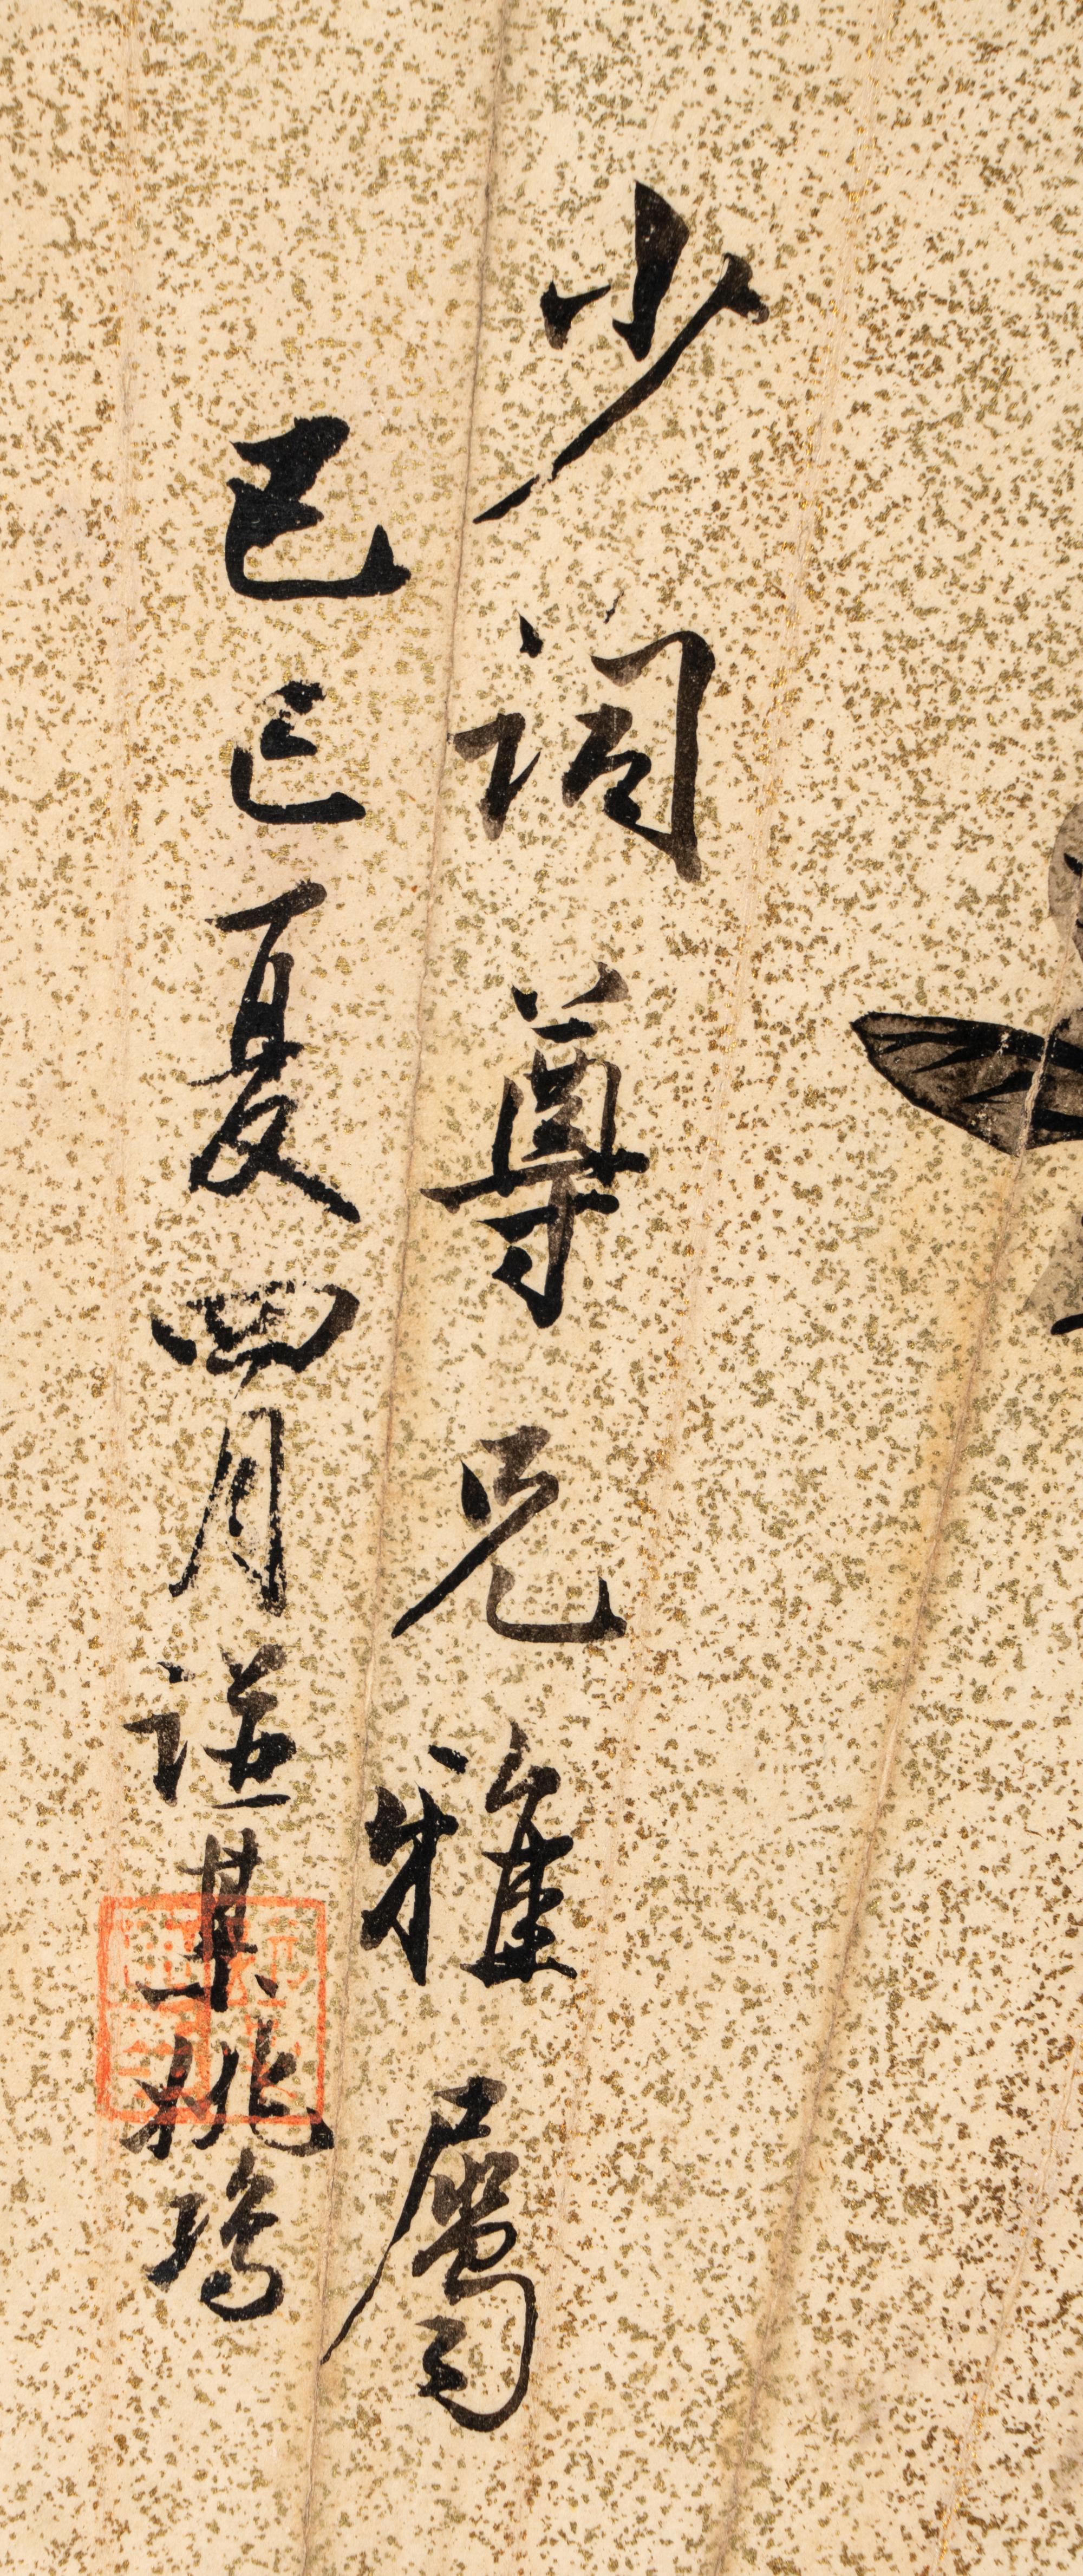 少詞尊兄雅屬
己巳夏四月謹葉姚